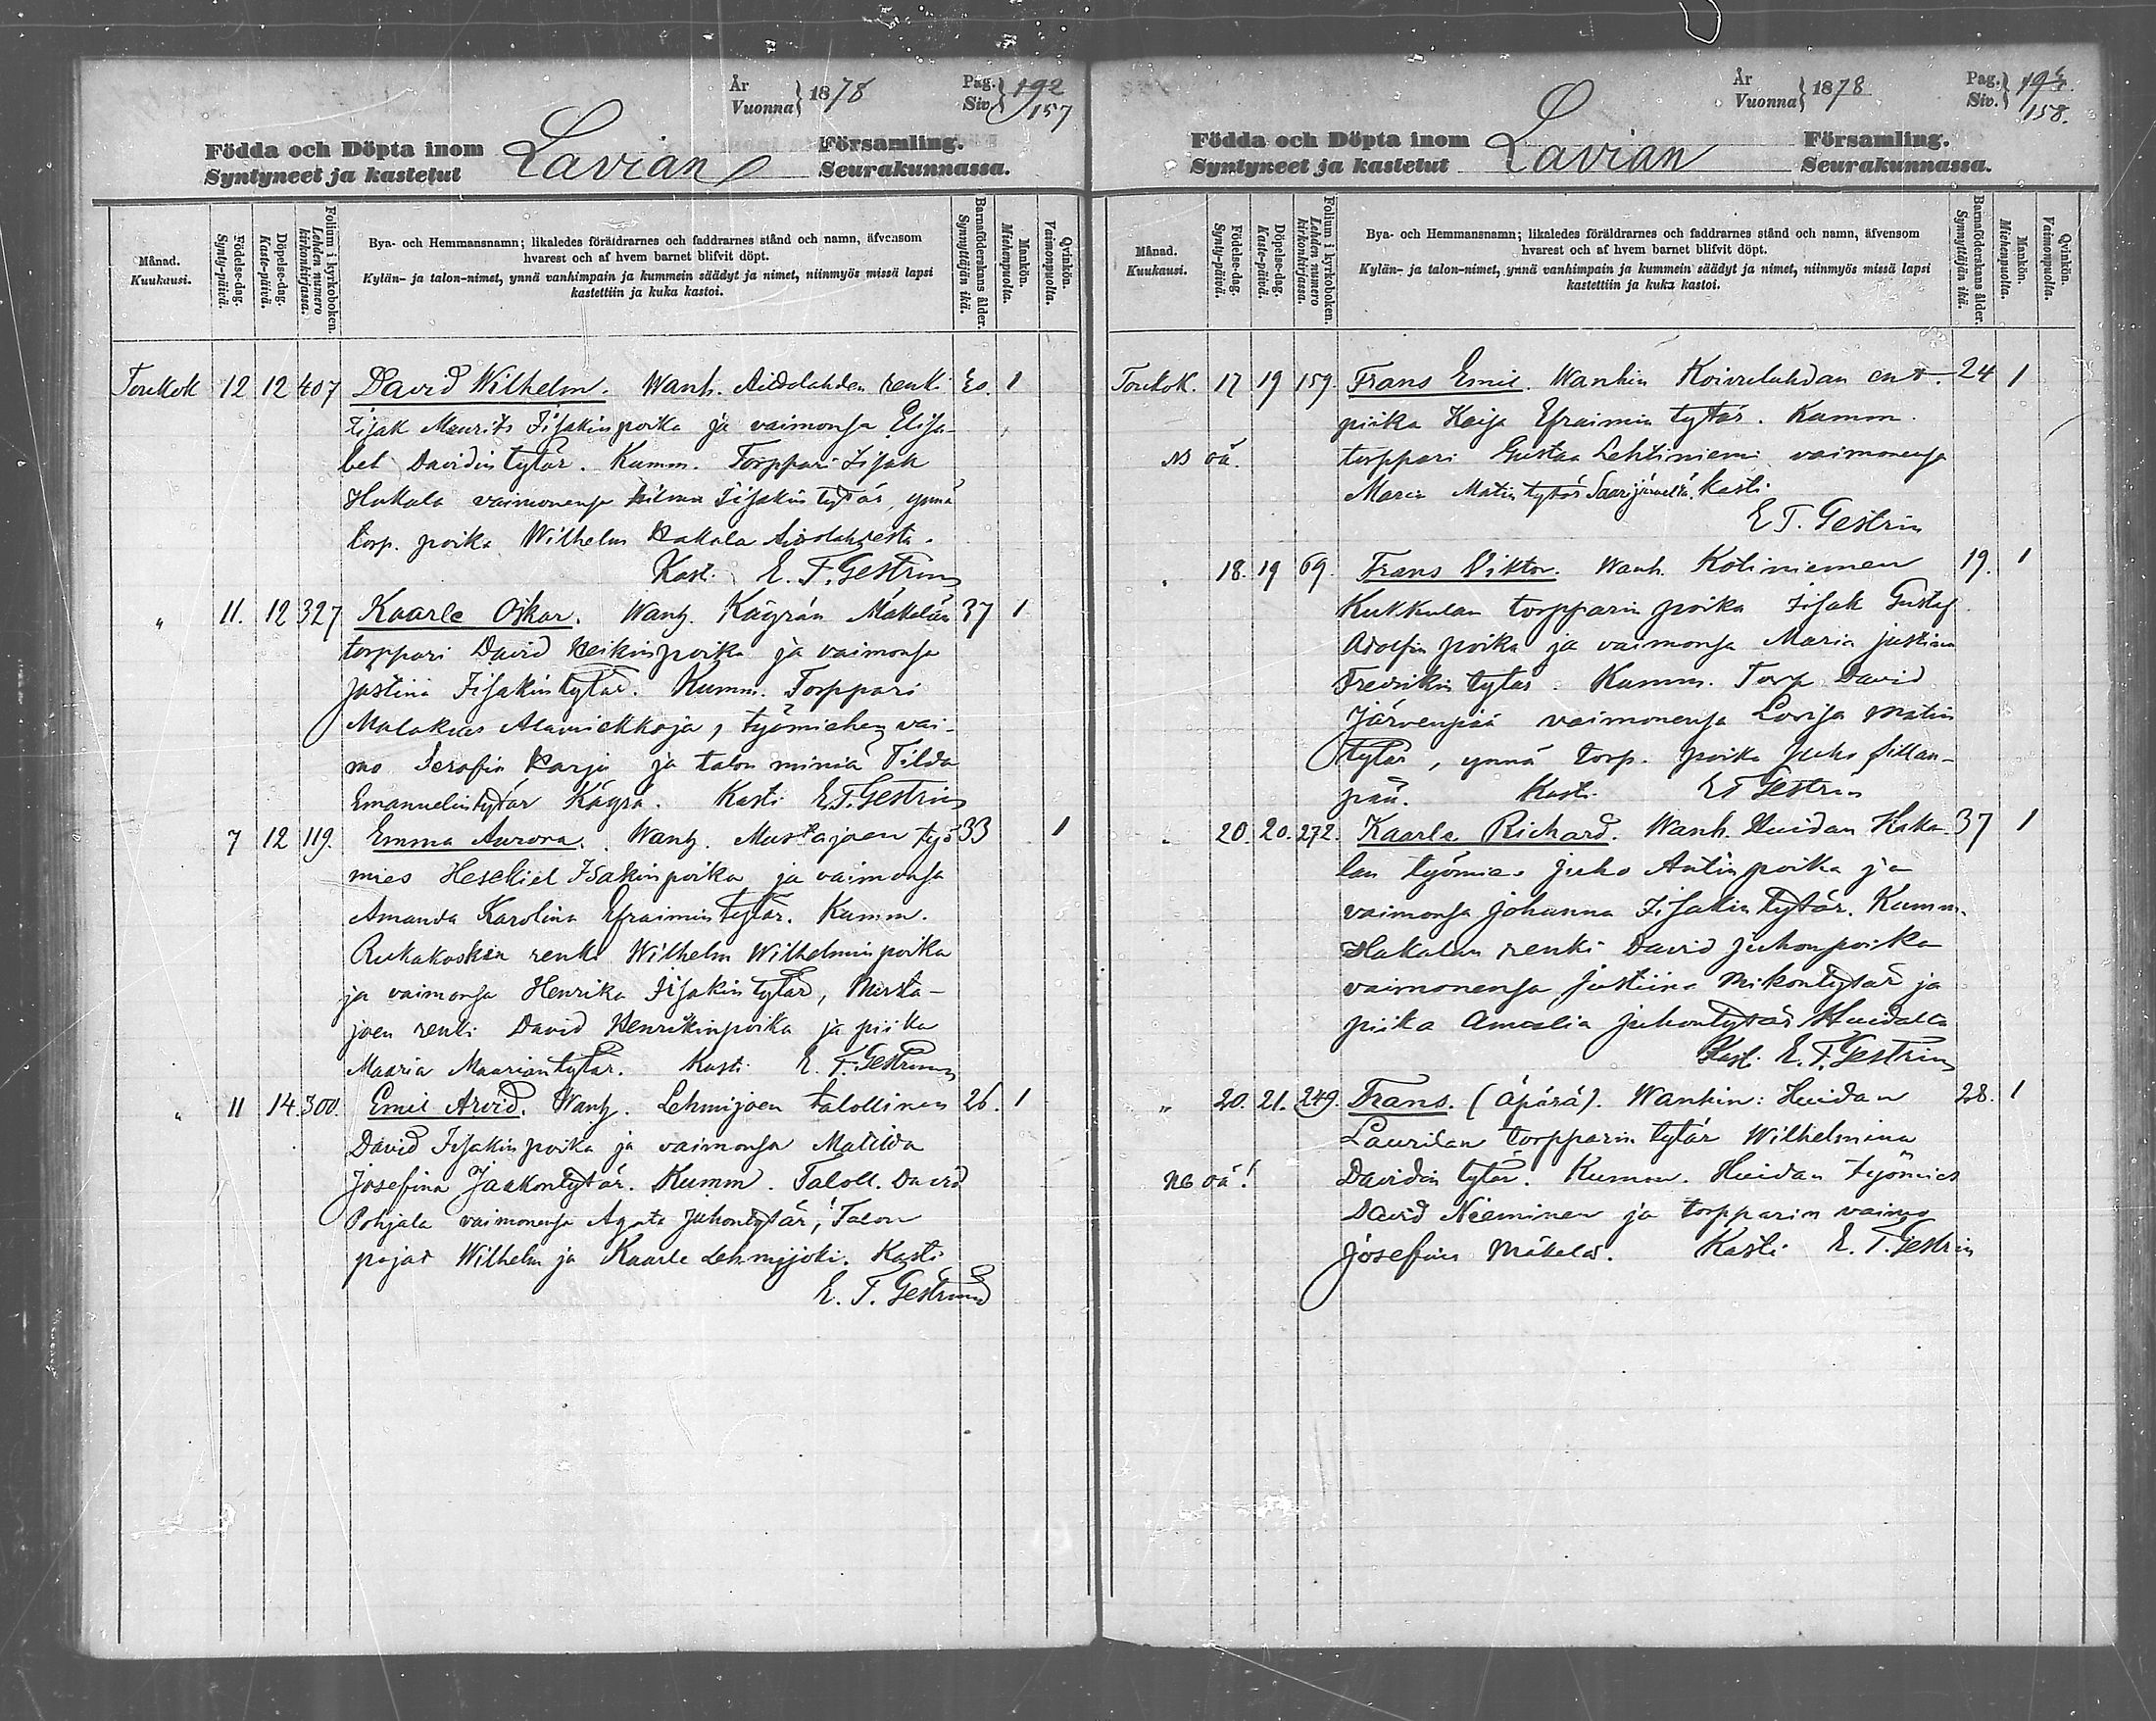 År
Vuonna } 1878
Pag.
Siv. } 192
157
Födda och Döpta inom
Syntyneet ja kastetut
Lavian
Församling.
Seurakunnassa.
Månad.
Kuukausi.
Födelse-dag.
Synty-päivä.
Döpelse-dag.
Kaste-päivä.
Folium i kyrkoboken.
Lehden numero
kirkonkirjassa.
Bya- och Hemmansnamn; likaledes föräldrarnes och faddrarnes stånd och namn, äfvensom
hvarest och af hvem barnet blifvit döpt.
Kylän- ja talon-nimet, ynnä vanhimpain ja kummein säädyt ja nimet, niinmyös missä lapsi
kastettiin ja kuka kastoi.
Barnaföderskans ålder.
Synnyttäjän ikä.
Mankön.
Miehenpuolta.
Qvinkön.
Vaimonpuolta.
Toukok 12 12 407 David Wilhelm. Wanh. renki 1
Iisak Maurits Iisakinpoika ja vaimonsa Elisa-
bet Davidintytär. Kumm. Torppari Iisak
Hakala vaimonensa Hilma Iisakintytär, ynnä
torp. poika Wilhelm Hakala
Kast. E. T. Gestrin
" 11. 12 327 Kaarle Oskar. Wanh. Käyrän Mäkelän 37 1
torppari David Heikinpoika ja vaimonsa
Justina Iisakintytär. Kumm. Torppari
Malakias , työmiehen vai-
mo Serafia Karju ja talon miniä Tilda
Emanuelintytär Käyrä. Kasti E. T. Gestrin
7 12 119. Emma Aurora. Wanh. Mustajoen työ 33 1
mies Hesekiel Isakinpoika ja vaimonsa
Amanda Karolina Efraimintytär. Kumm.
Riukakosken renki Wilhelm Wilhelminpoika
ja vaimonsa Henrika Iisakintytär, Musta-
joen renki David Henrikinpoika ja piika
Maaria Maariantytär. Kasti E. T. Gestrin
" 11 14. 300. Emil Arvid. Wanh. Lehmijoen talollinen 26. 1
David Iisakinpoika ja vaimonsa Matilda
Josefina Jaakontytär. Kumm. Taloll. David
Pohjala vaimonensa Agata Juhontytär, Talon
pojat Wilhelm ja Kaarle Lehmijoki. Kasti
E. T. Gestrin
År
Vuonna } 1878
Pag.
Siv. }
158.
Födda och Döpta inom
Syntyneet ja kastetut
Lavian
Församling.
Seurakunnassa.
Månad.
Kuukausi.
Födelse-dag.
Synty-päivä.
Döpelse-dag.
Kaste-päivä.
Folium i kyrkoboken.
Lehden numero
kirkonkirjassa.
Bya- och Hemmansnamn; likaledes föräldrarnes och faddrarnes stånd och namn, äfvensom
hvarest och af hvem barnet blifvit döpt.
Kylän- ja talon-nimet, ynnä vanhimpain ja kummein säädyt ja nimet, niinmyös missä lapsi
kastettiin ja kuka kastoi.
Barnaföderskans ålder.
Synnyttäjän ikä.
Mankön.
Miehenpuolta.
Qvinkön.
Vaimonpuolta.
Toukok. 17 19 159. Frans Emil. Wanhin Koivulahdan ent. 24 1
piika Kaisa Efraimin tytär. Kumm
NB oä. torppari Gustaa Lehtiniemi vaimonensa
Maria Matintytär Saarijärveltä. Kasti
E T. Gestrin
" 18. 19 69. Frans Viktor. Wanh. Kotiniemen 19. 1
Kukkulan torpparin poika Iisak Gustaf
Adolfin poika ja vaimonsa Maria Justiina
Fredrikin tytär. Kumm. Torp David
Järvenpää vaimonensa Lovisa Matin
tytär, ynnä torp. poika Juho Sillan-
pää. Kasti E T Gestrin
" 20. 20. 272. Kaarle Richard. Wanh. Huidan Haka- 37 1
lan työmies Juho Antinpoika ja
vaimonsa Johanna Iisakintytär. Kumm.
Hakalan renki David Juhonpoika
vaimonensa Justiina Mikontytär ja
piika Amalia Juhontytär Huidalta
Kast. E. T. Gestrin
" 20. 21. 249. Frans. (äpärä). Wanhin: Huidan 28. 1
Laurilan torpparin tytär Wilhelmina
NB oä! Davidin tytär. Kumm. Huidan työmies
David Nieminen ja torpparin vaimo
Josefina Mäkelä. Kasti E. T. Gestrin